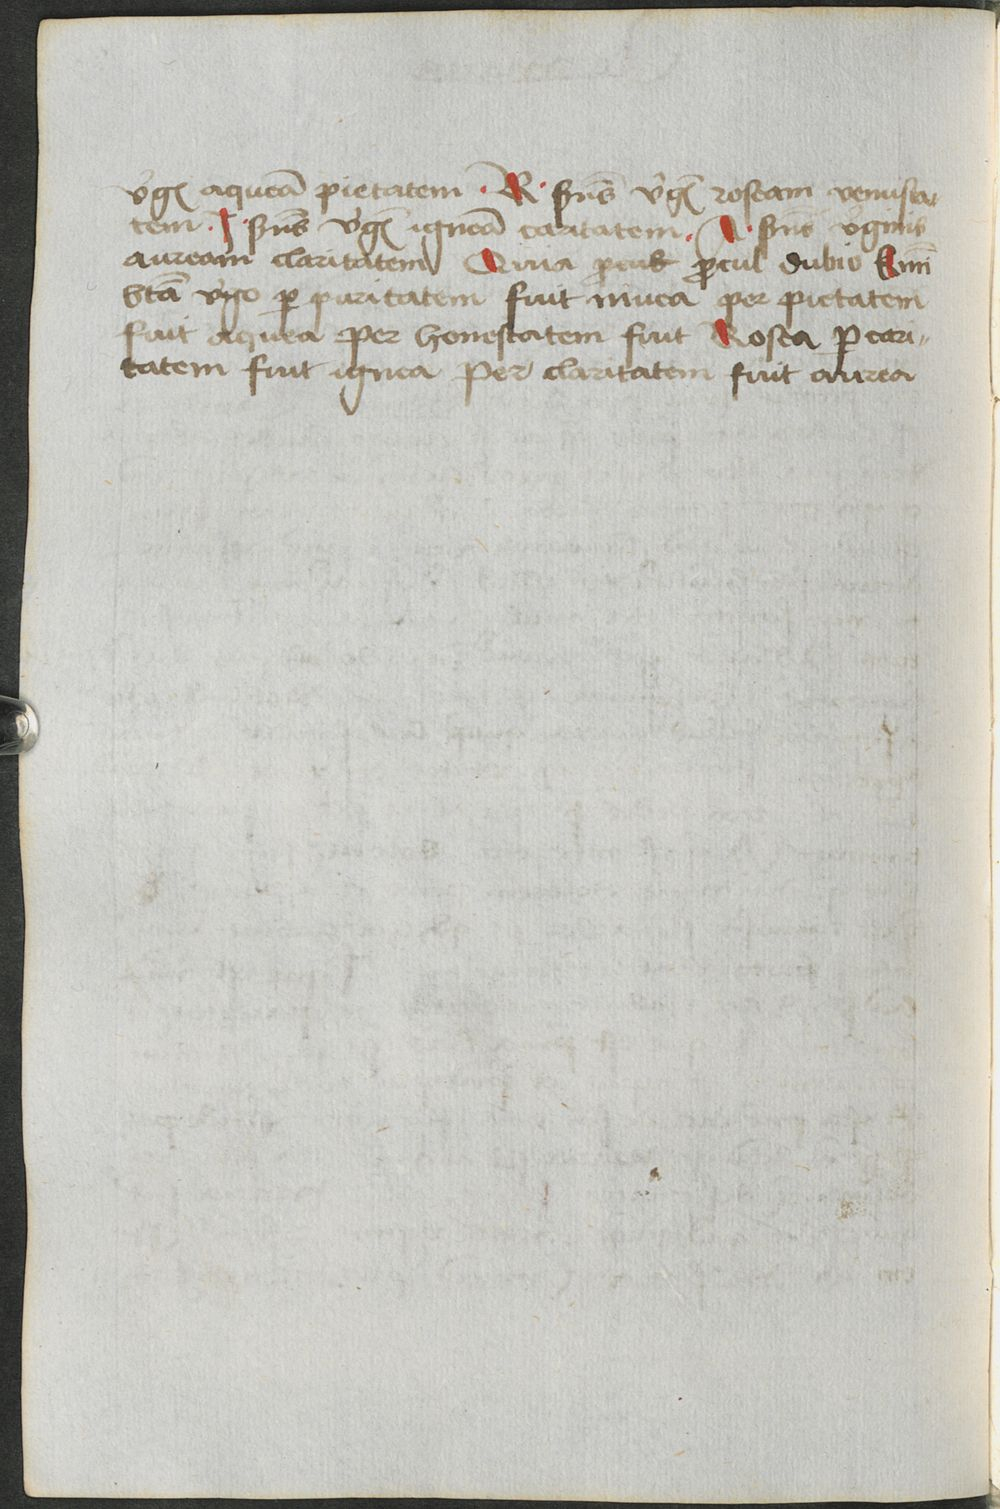 v̓gī aqueā pietatem · R · signās v̓gī roseam venusta-
tem · I · signās v̓gī igneā caritatem · A · signās v̓ginis
auream claritatem Quia procul dubio
btā v̓go ꝑ puritatem fuit nivea per pietatem
fuit aquea per honestatem fuit Rosea ꝑ cari-
tatem fuit ignea per claritatem fuit aurea